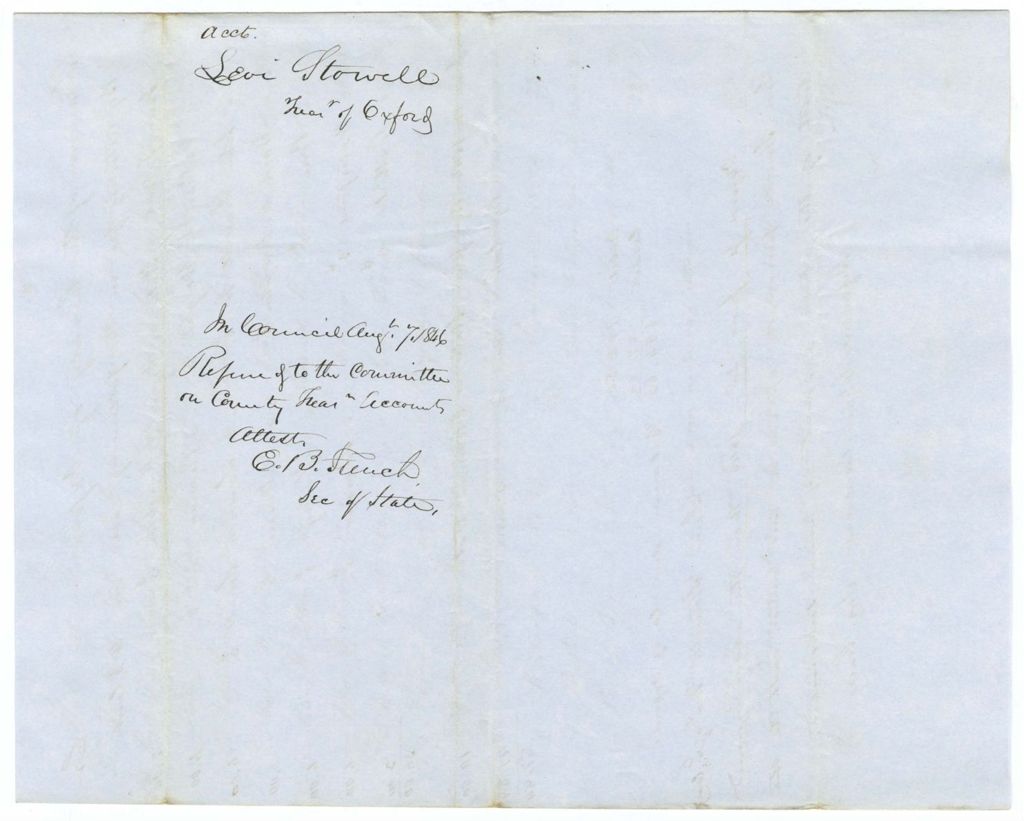 Acct.
Levi Stowell
Treasr of Oxford
In Council Augt. 7, 1846
Refered to the Committee
on County Treasrs Accounts
Attest,
E. B. French
Sec of State,